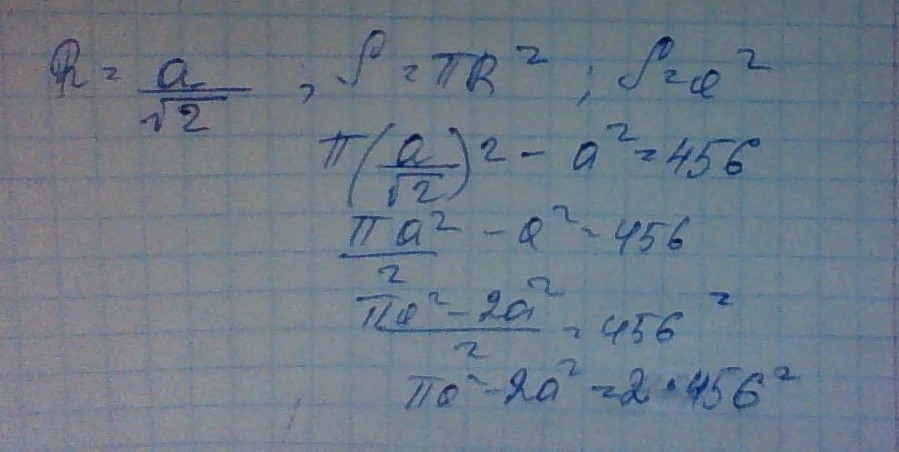 R = a/√2 ; S = πR² ; S = a²
π(a/√2)² - a² = 456
πa²/2 - a² = 456
πa² - 2a²/2 = 456²
πa² - 2a² = 2 · 456²